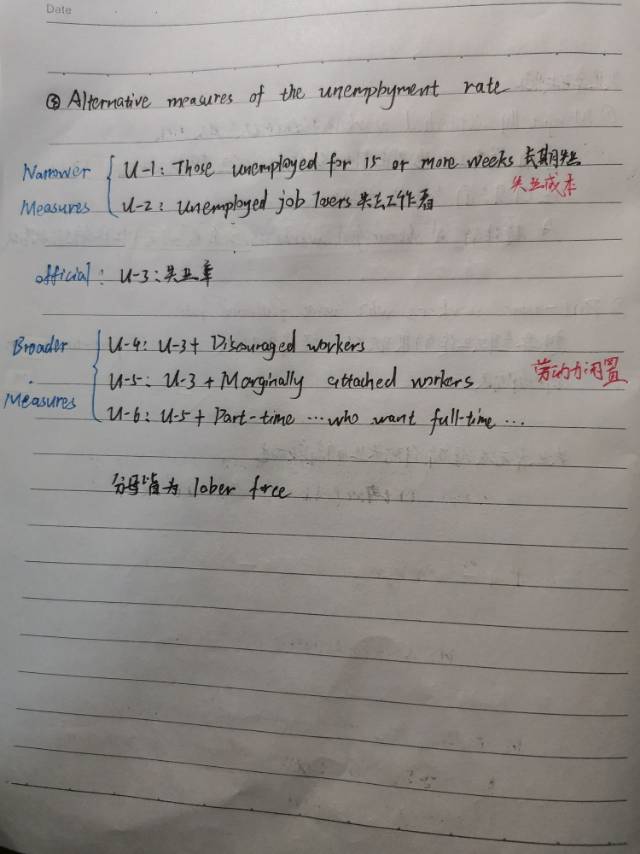 Date
③ Alternative measures of the unemployment rate
Narrower Measures
U-1: Those unemployed for 15 or more weeks 长期失业
失业成本
U-2: Unemployed job losers 失去工作者
official: U-3: 失业率
Broader Measures
U-4: U-3 + Discouraged workers
U-5: U-3 + Marginally attached workers 劳动力闲置
U-6: U-5 + Part-time ... who want full-time ...
分母皆为 laber force